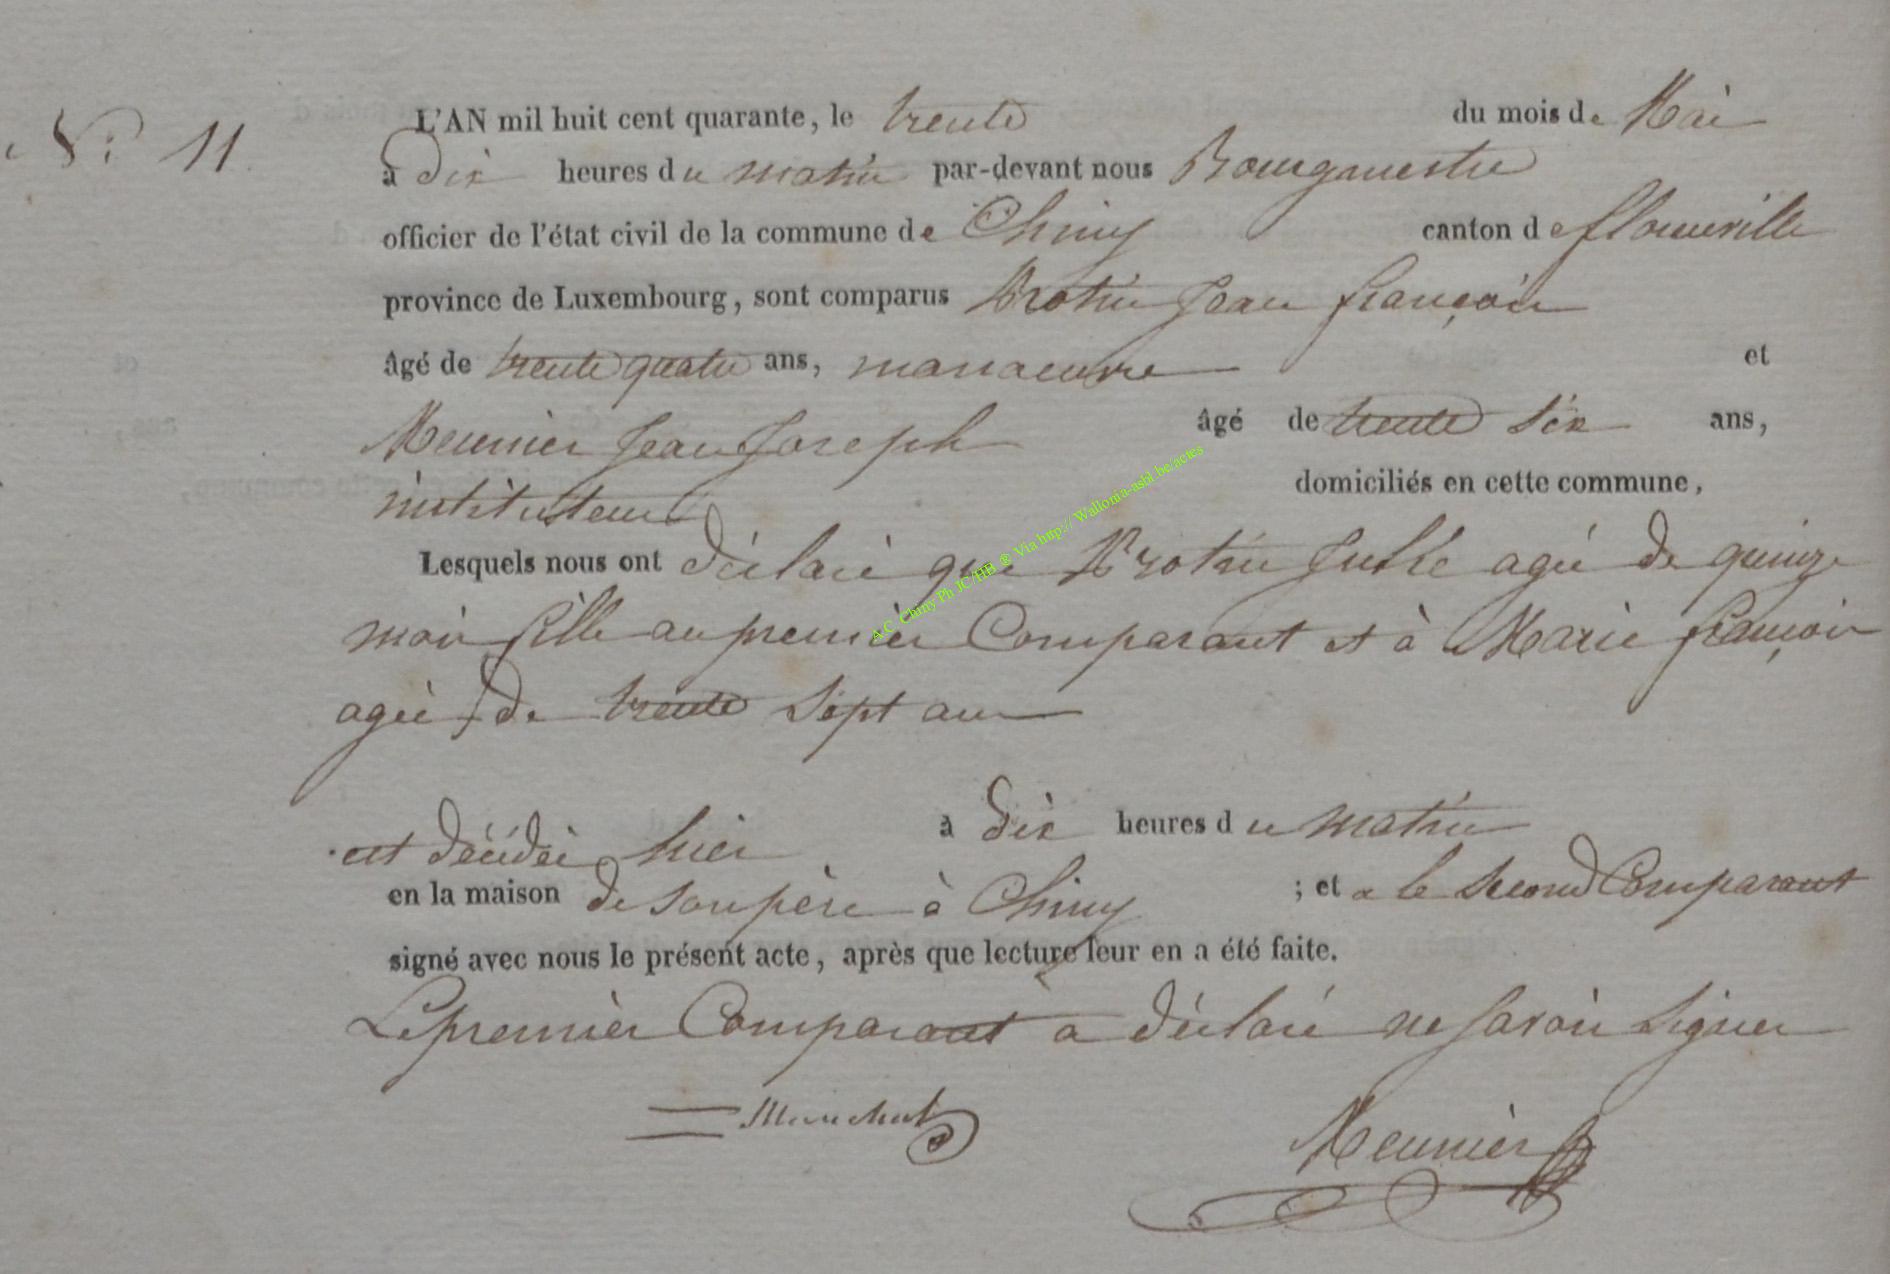 N° 11
L'AN mil huit cent quarante, le trente du mois de Mai
à dix heures du matin par-devant nous Bourgmestre
officier de l'état civil de la commune de Chiny canton de florenville
province de Luxembourg, sont comparus Brotin Jean françois
âgé de trente quatre ans, manaeuvre et
Meunier Jean Joseph âgé de trente six ans,
instituteur domiciliés en cette commune,
Lesquels nous ont déclaré que Brotin agée de quinze
mois fille au premier Comparant et à Marie françois
agée de trente sept ans
est décédée hier à dix heures du matin
en la maison de son père à Chiny ; et a le second Comparant
signé avec nous le présent acte, après que lecture leur en a été faite.
Le premier Comparant a déclaré ne savoir signer
Meunier
A.C. Chiny Ph JC/HB ® Via http:// Wallonia-asbl.be/actes